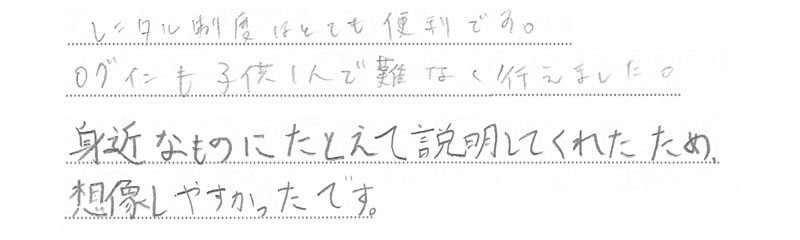 レンタル制度はとても便利です。
ログインも子供1人で難なく行えました。
身近なものにたとえて説明してくれたため、
想像しやすかったです。